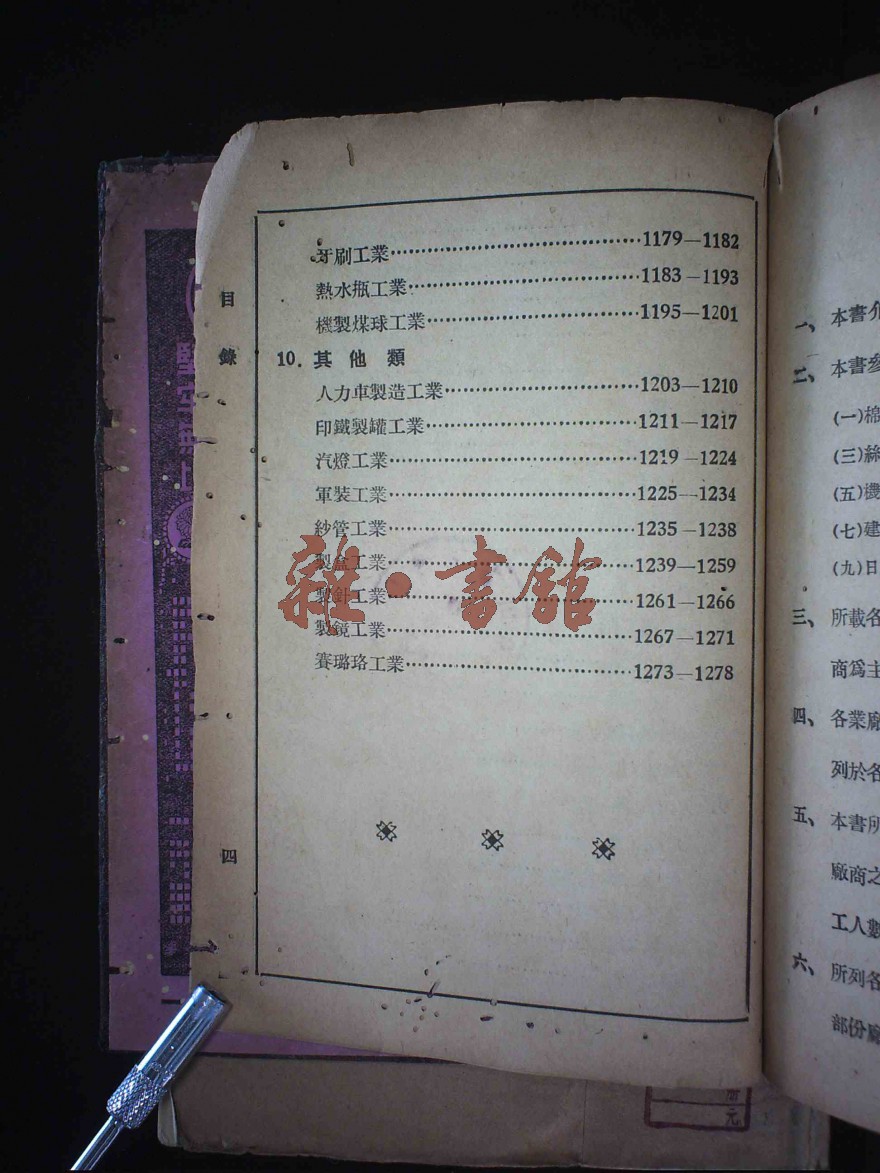 目錄
牙刷工業……1179—1182
熱水瓶工業……1183—1193
機製煤球工業……1195—1201
10. 其他類
人力車製造工業……1203—1210
印鐵製罐工業……1211—1217
汽燈工業……1219—1224
軍裝工業……1225—1234
紗管工業……1235—1238
製盒工業……1239—1259
製針工業……1261—1266
製鏡工業……1267—1271
賽璐珞工業……1273—1278
四
雜·書館
一、本書介
二、本書參
(一)棉
(三)絲
(五)機
(七)建
(九)日
三、所載各
商爲主
四、各業廠
列於各
五、本書所
廠商之
工人數
六、所列各
部份廠
元